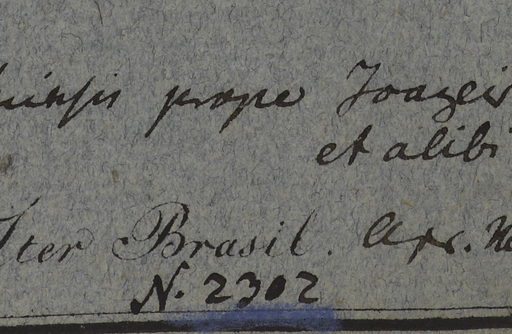 prope Joazeir
et alibi
Iter Brasil. Apr.
N. 2302